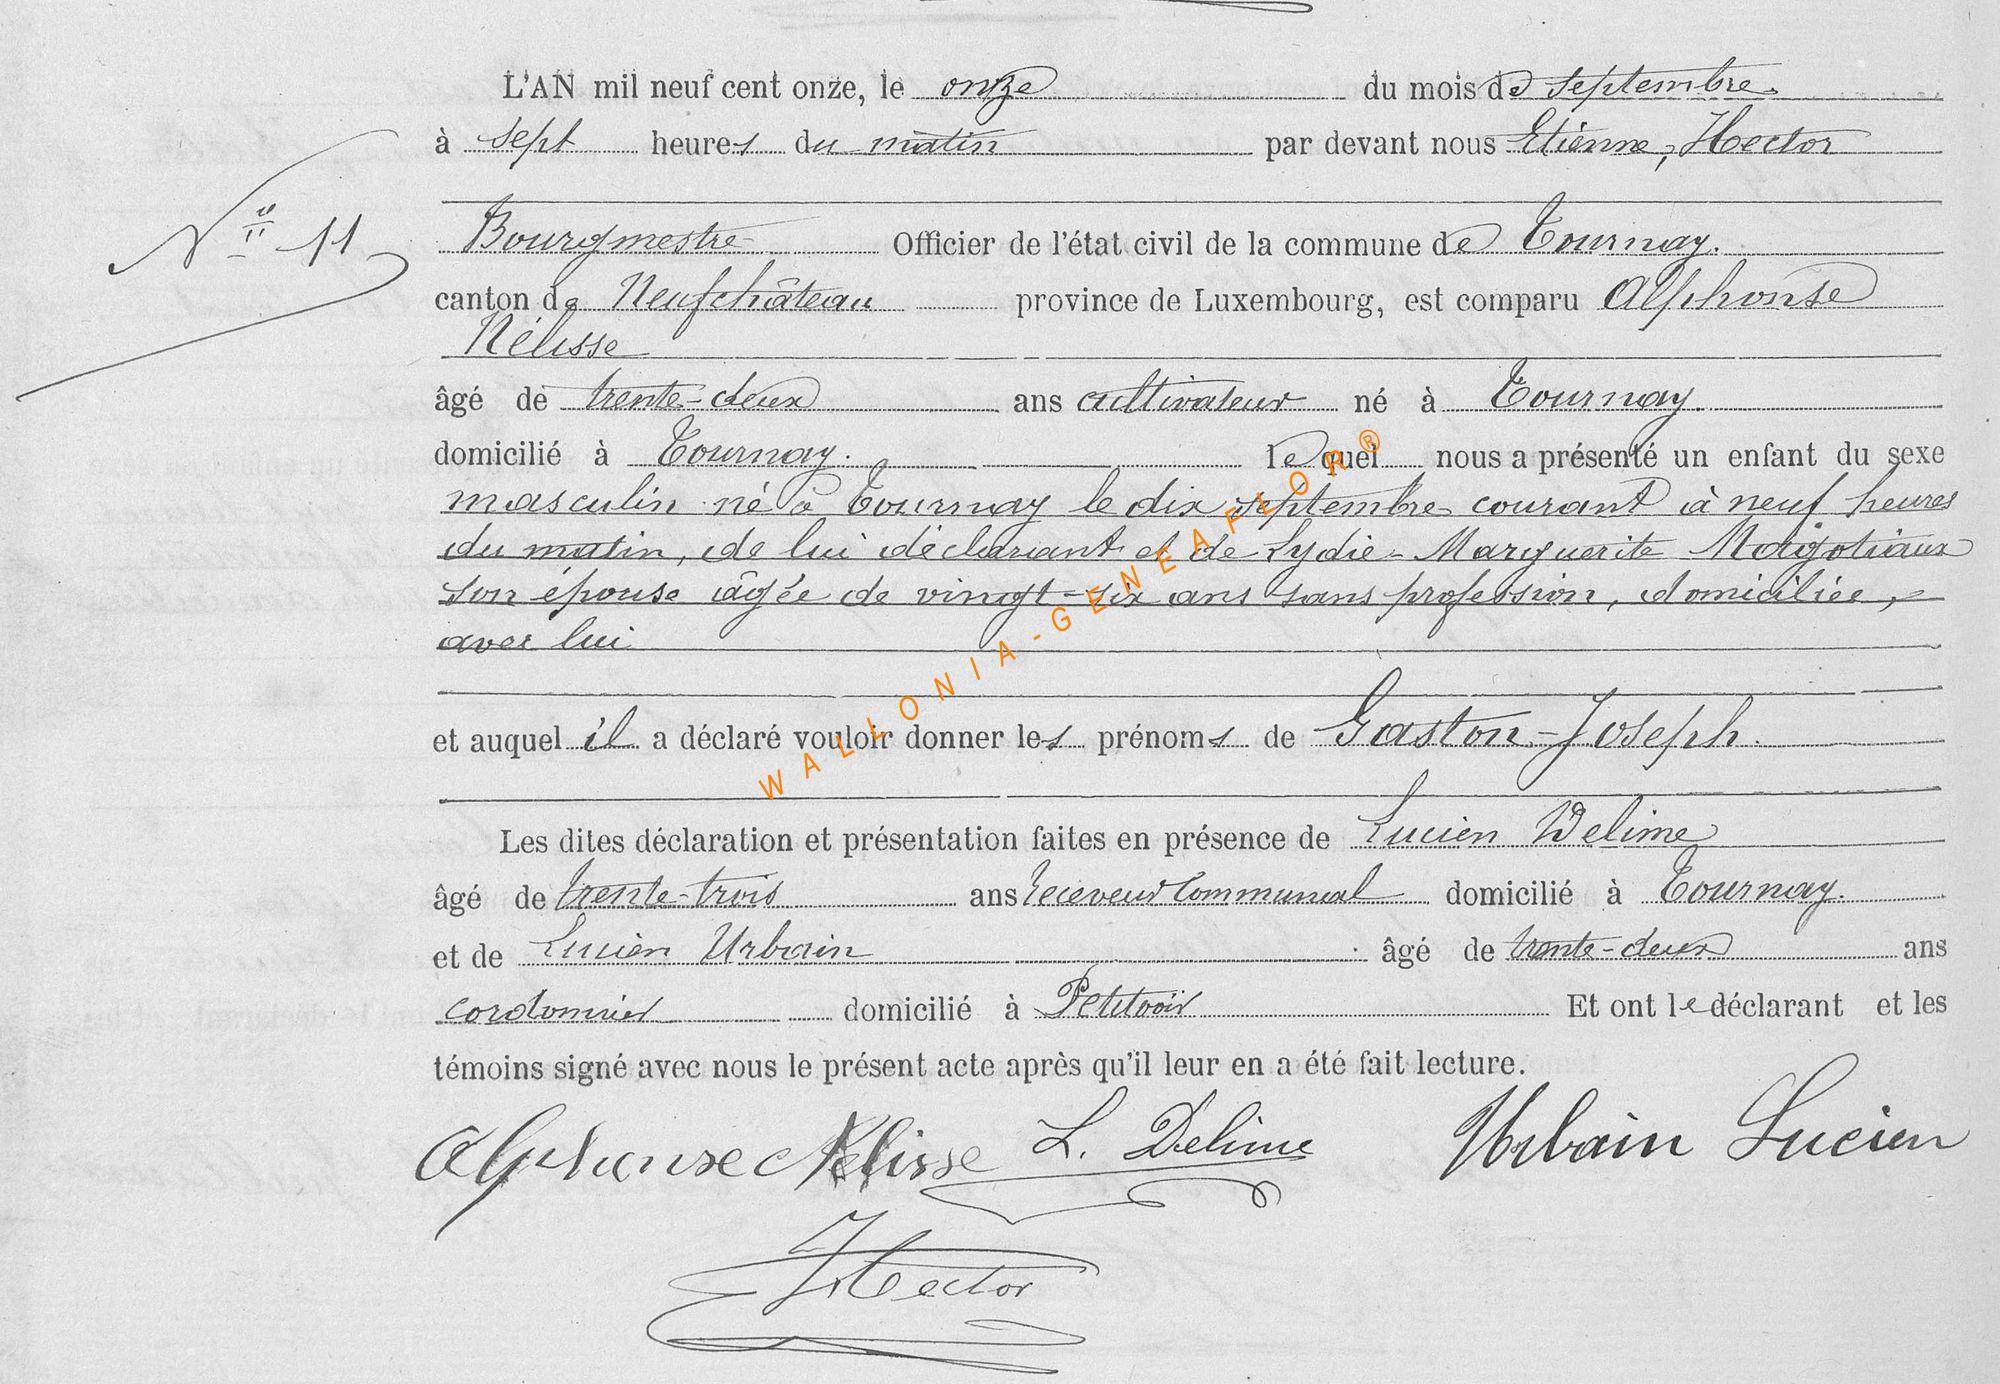 L'AN mil neuf cent onze, le onze du mois de septembre
à sept heures du matin par devant nous Etienne, Hector
N° 11
Bourgmestre Officier de l'état civil de la commune de Tournay.
canton de Neufchâteau province de Luxembourg, est comparu Alphonse
Nélisse
âgé de trente-deux ans cultivateur né à Tournay.
domicilié à Tournay. lequel nous a présenté un enfant du sexe
masculin né à Tournay le dix septembre courant à neuf heures
du matin, de lui déclarant et de Lydie-Marguerite Magotiaux
son épouse âgée de vingt-six ans sans profession, domiciliée,
avec lui
et auquel il a déclaré vouloir donner les prénoms de Gaston-Joseph.
Les dites déclaration et présentation faites en présence de Lucien Delime
âgé de trente-trois ans receveur communal domicilié à Tournay.
et de Lucien Urbain âgé de trente-deux ans
cordonnier domicilié à Petitvoir Et ont le déclarant et les
témoins signé avec nous le présent acte après qu'il leur en a été fait lecture.
Alphonse Nélisse L. Delime Urbain Lucien
Hector
WALLONIA-GENEAFLOR®